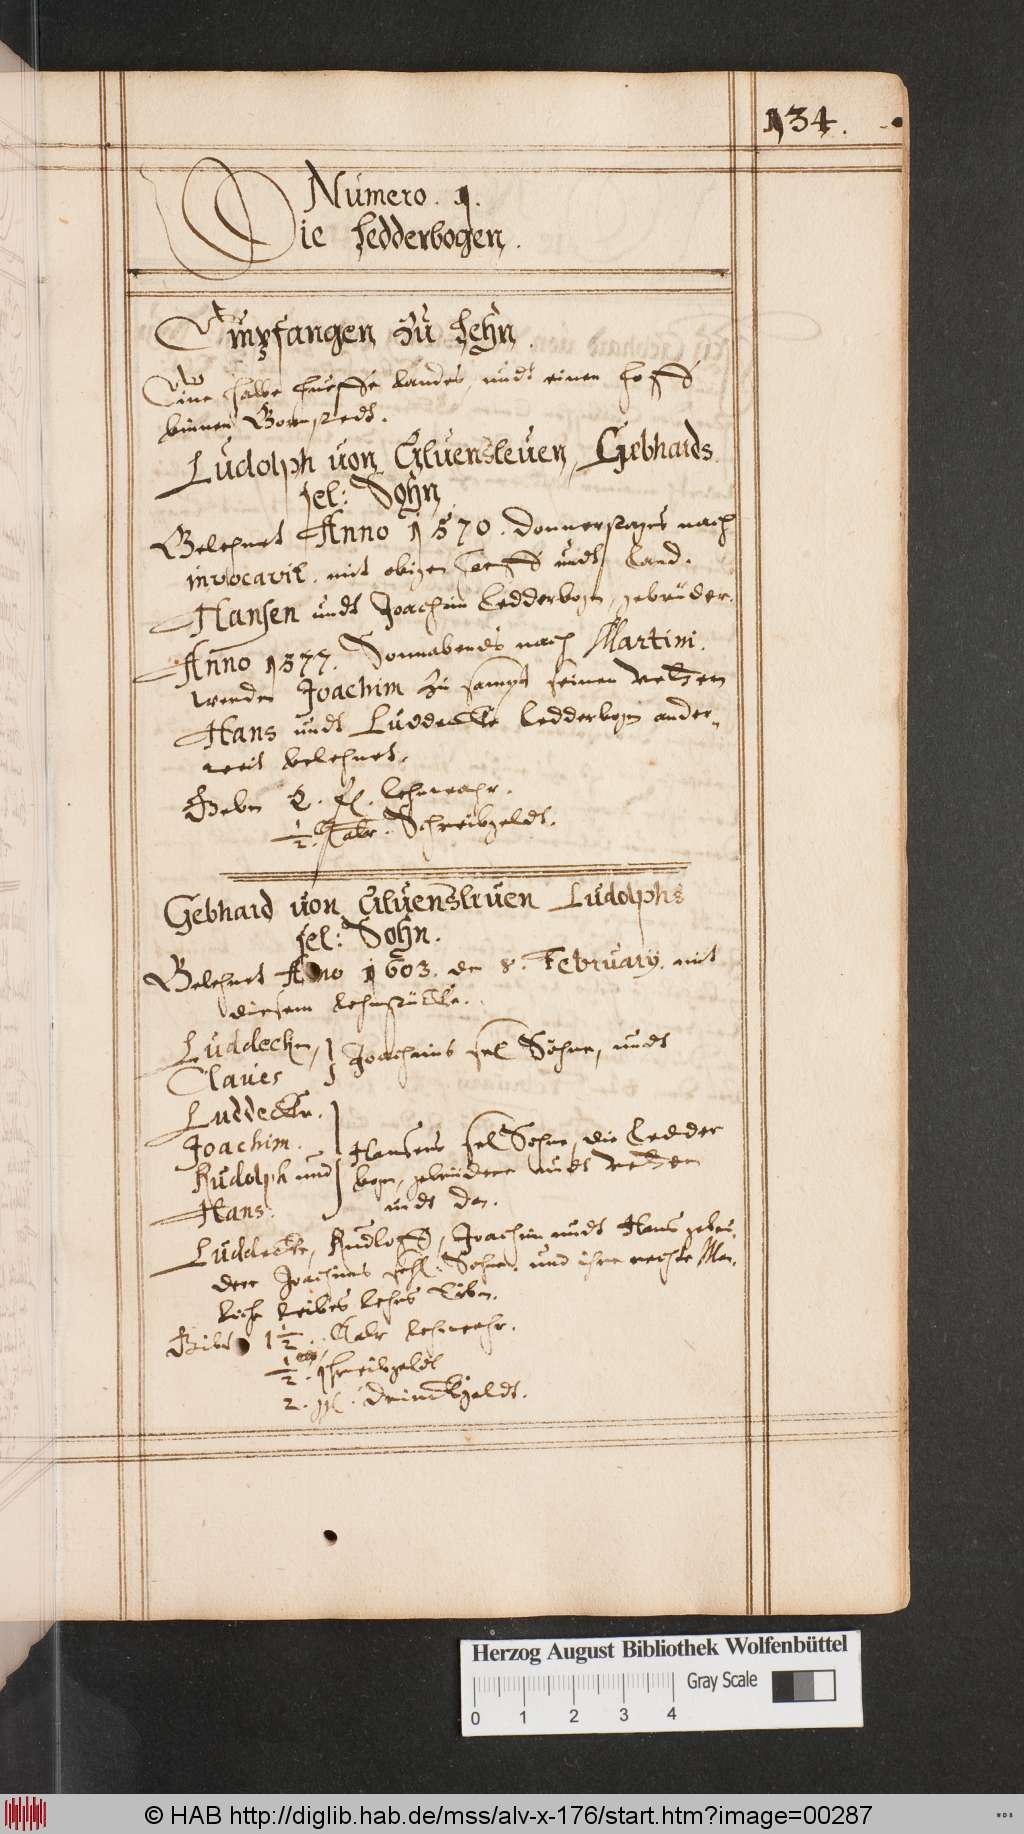 134.
Numero. 1.
Die Ledderbogen.
Empfangen Zu Lehn.
Eine halbe Hueffe landes, undt einen Hoff
binnen Bornstedt.
Ludolph von Alvensleven, Gebhards
sel: Sohn
Belehnet Anno 1570. Donnerstages nach
invocavit. mit obigen Hoeff undt Land.
Hansen undt Joachim Ledderbogen, gebrüder.
Anno 1577. Sonnabends nach Martini.
werden Joachim zu sampt seinen vettern
Hans undt Luddecke Ledderbogen ander-
weit belehnet.
Geben 2. fl. lehnwahr.
1/2. Talr. Schreibgeldt.
Gebhard von Alvensleven Ludolphs
sel: Sohn.
Belehnet Anno 1603. den 8. February. mit
diesem lehnstücke.
Luddecken,
Claues
Joachims sel Söhne, undt
Luddecke.
Joachim.
Rudolph und
Hans.
Hansens sel Sohne, die Ledder
bogen, gebrüdere undt vettern
undt den.
Luddecke, Rudloff, Joachim undt Hans gebrü-
dere Joachims sehl: Sohne. und ihre rechte Men-
liche leibes lehns Erben.
Gibt 1 1/2. Talr lehnwahr.
1/2. schreibgeldt
2. gl. Drinckgeldt.
Herzog August Bibliothek Wolfenbüttel
Gray Scale
0 1 2 3 4
© HAB http://diglib.hab.de/mss/alv-x-176/start.htm?image=00287